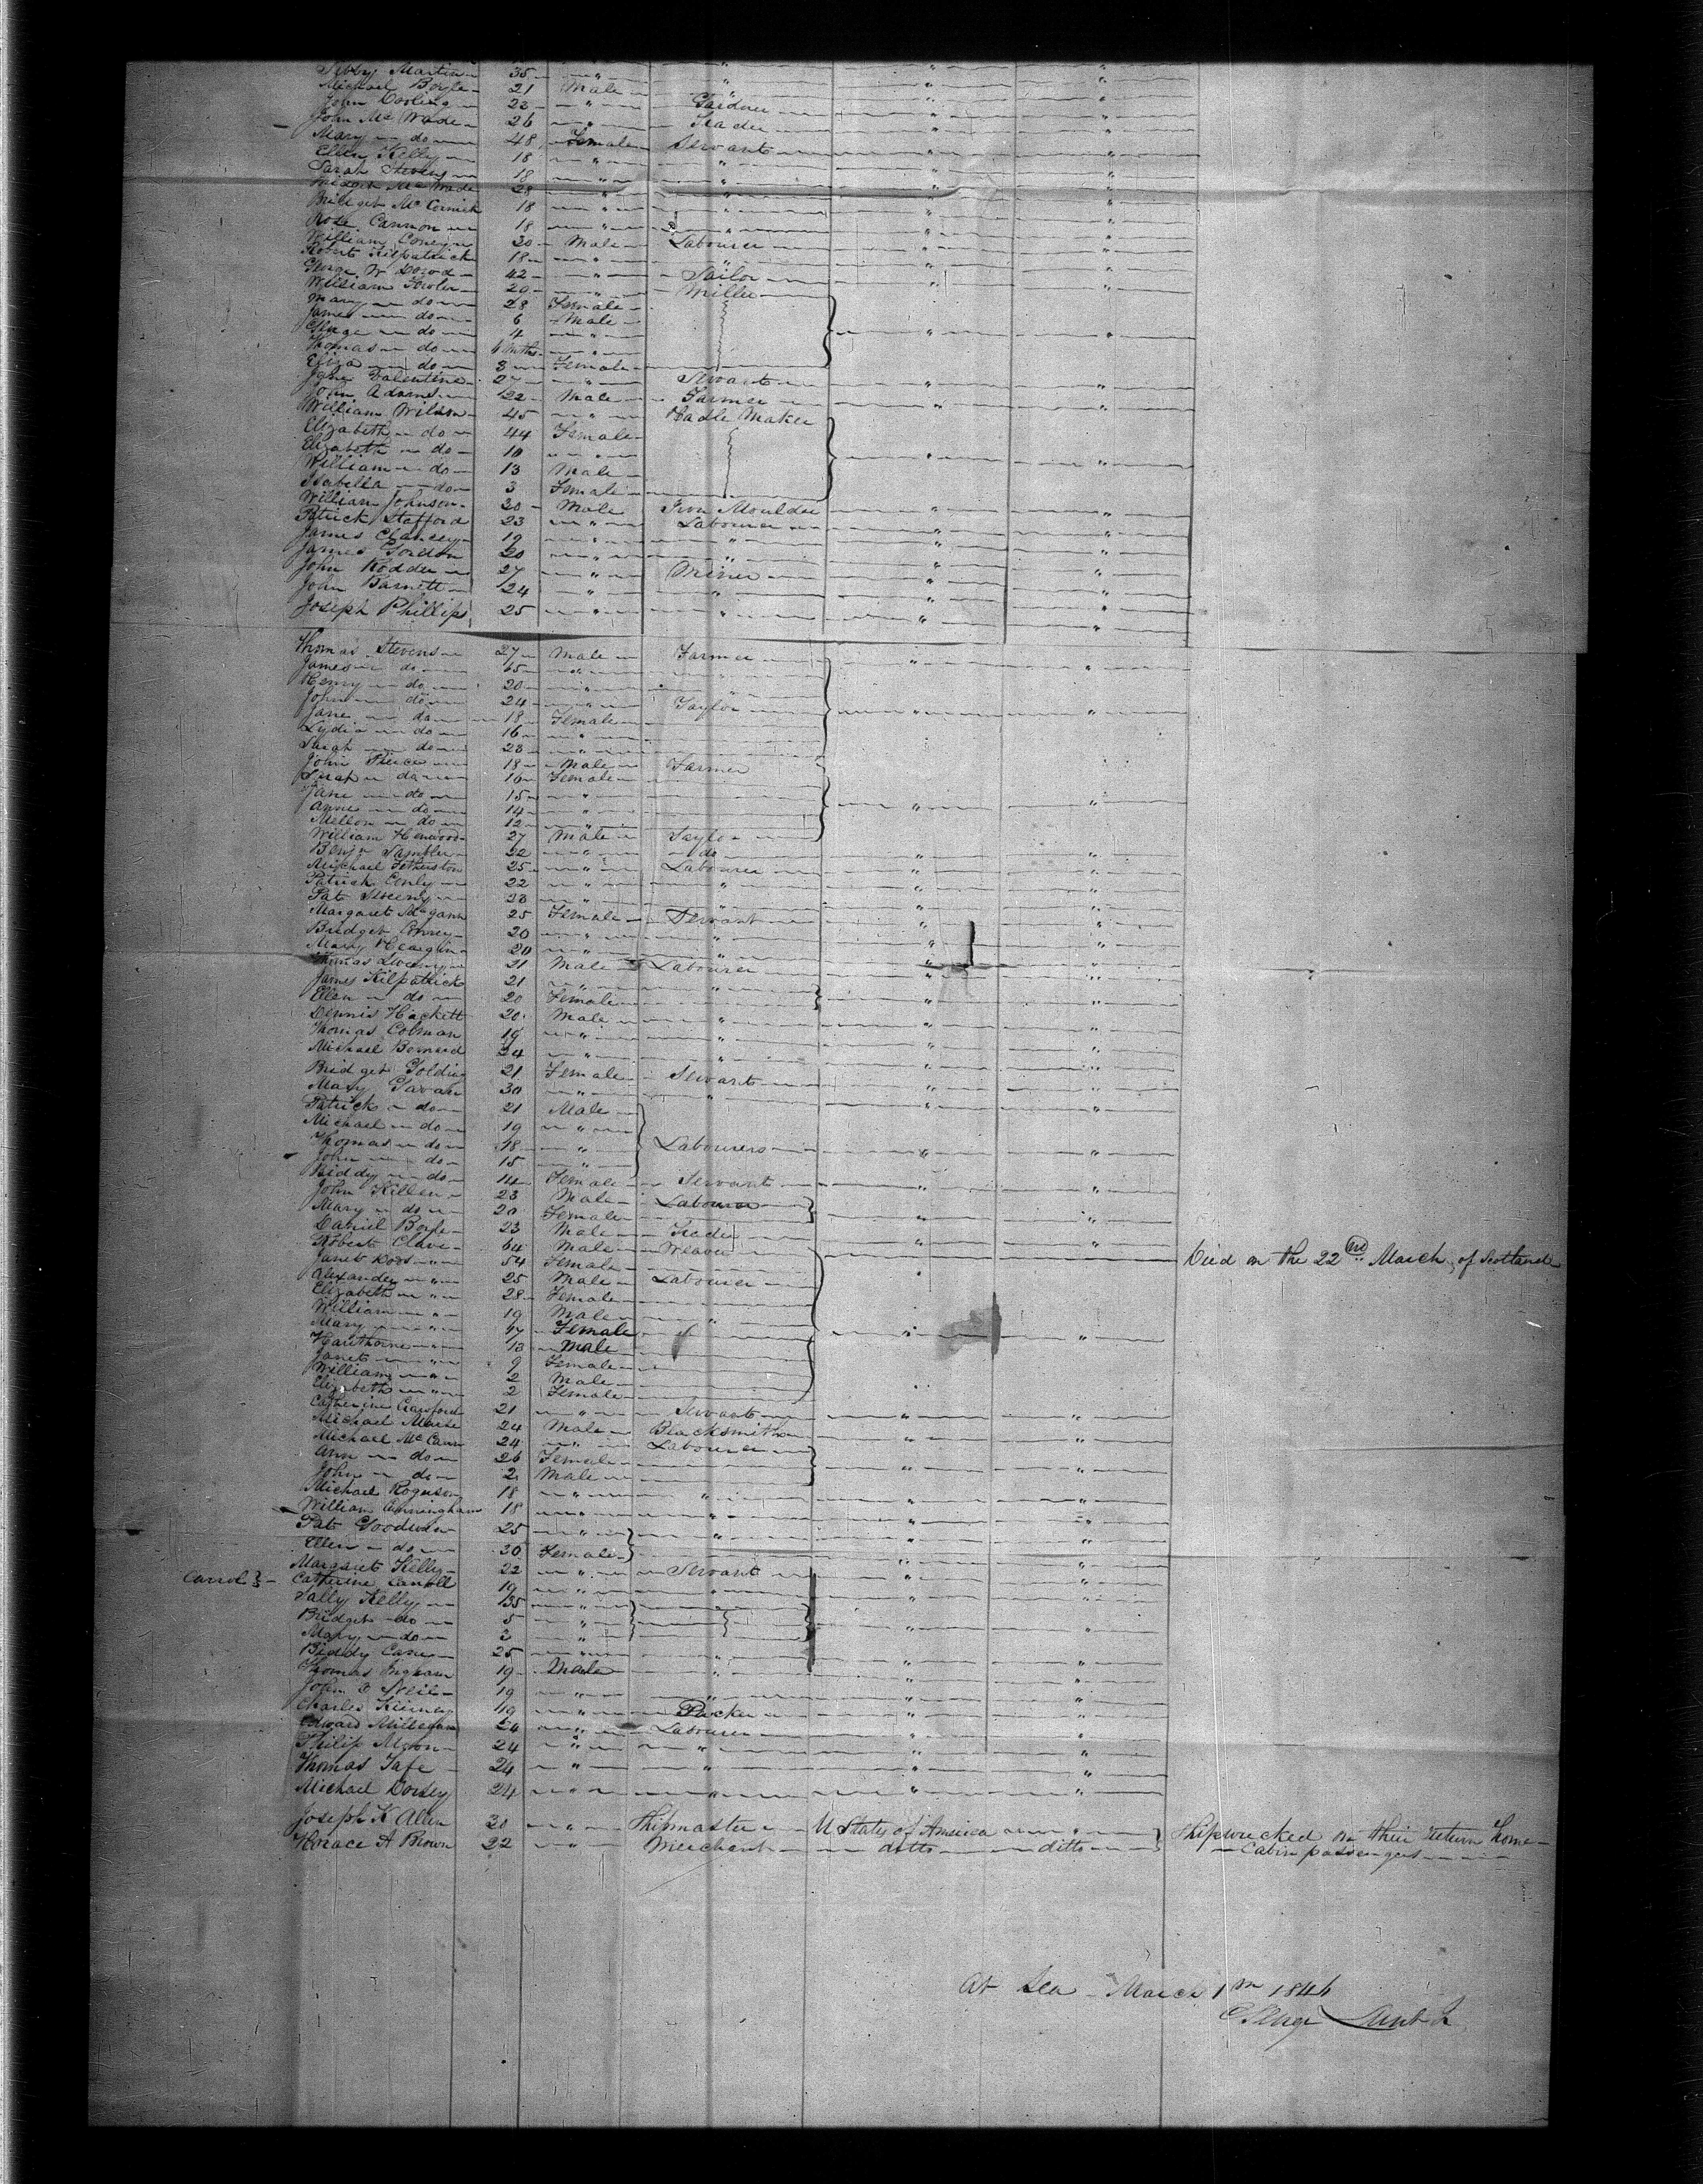 Sibby Martin 35 " " " "
Michael Boyle 21 Male " " "
John 23 " Gardner " "
John McWade 26 " " "
Mary do 48 Female Servant " "
Ellen Kelly 18 " " " "
Sarah Stevens 18 " " " "
Bridget McWade 28 " " " "
Bridget McCormick 18 " " " "
Rose Cannon 18 " " " "
William 20 Male Labourer " "
Robert Kilpatrick 18 " " " "
George W 42 " Sailor " "
William Fowler 29 " Miller " "
Mary do 28 Female
James do 6 Male " "
George do 4 "
Thomas do 6 mths "
Eliza do 3 Female
Jane Valentine 27 " Servant " "
John Adams 22 Male Farmer " "
William Wilson 45 " Maker
Elizabeth do 44 Female
Elizabeth do 10 " " "
William do 13 Male
Isabella do 3 Female
William Johnson 30 Male Iron Moulder " "
Patrick Stafford 23 " Labourer " "
James Clancey 19 " " " "
James Gordon 20 " " " "
John Rodder 27 " Miner " "
John Barnett 24 " " " "
Joseph Phillips 25 " " " "
Thomas Stevens 27 Male Farmer " "
James do 65 "
Henry do 20 " "
John do 24 " Taylor " "
Jane do 18 Female
Lydia do 16 "
Sarah do 28 "
John Pierce 18 Male Farmer
Sarah do 16 Female
Jane do 15 " " "
Anne do 14 "
do 12 "
William Henwood 27 Male Taylor
Benjn Sambler 22 " do " "
Michael Fetherston 25 " Labourer " "
Patrick Conly 22 " " " "
Pat Sweeny 23 " " " "
Margaret McGann 25 Female Servant " "
Bridget 20 " " " "
Mary 20 " " " "
Thomas Sweeny 21 Male Labourer " "
James Kilpatrick 21 " " " "
Ellen do 20 Female
Dennis Hackett 20 Male " " "
Thomas Colman 19 " " " "
Michael 24 " " " "
Bridget Golding 21 Female Servant " "
Mary Gavan 30 " " " "
Patrick do 21 Male
Michael do 19 "
Thomas do 18 " Labourers " "
John do 15 "
Biddy do 14 Female Servant " "
John Killen 23 Male Labourer
Mary do 20 Female " "
Daniel Boyle 23 Male " "
Robert 64 Male Weaver Died on the 22nd March, of Scotland
Janet 54 Female
Alexander " 25 Male Labourer
Elizabeth " 28 Female
William " 19 Male "
Mary " 17 Female " "
Hawthorne " 13 Male
Janet " 9 Female
William " 2 Male
Elizabeth " 2 Female
Catherine Crawford 21 " Servant " "
Michael 24 Male Blacksmith " "
Michael McCann 24 " Labourer
Ann do 26 Female " "
John do 2 Male
Michael 18 " " " "
William Cunningham 18 " " " "
Pat Goodwin 25 " " " "
Ellen do 30 Female
Margaret Kelly 22 " Servant " "
Carrol Catherine Carroll 19 " " " "
Sally Kelly 35 "
Bridget do 5 " " "
Mary do 3 "
Biddy 25 " " "
Thomas Ingram 19 Male " " "
John O Neil 19 " " " "
Charles Kierney 19 " Packer " "
Edward Milligan 26 " Labourer " "
Philip 24 " " " "
Thomas Tafe 24 " " " "
Michael Dorsey 24 " " " "
Joseph K Allen 30 " Shipmaster U States of America "
Horace A Brown 22 " Merchant ditto ditto
Shipwrecked on their return home
Cabin passengers
At Sea March 1846
George